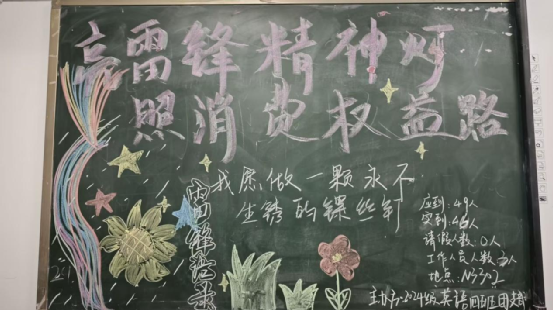 亮雷锋精神灯
照消费权益路
我愿做一颗永不
生锈的镙丝钉
雷锋语录
应到:49人
实到:46人
请假人数:0人
工作人员人数:3人
地点:N3302
主办方:2024级英语四班团支部